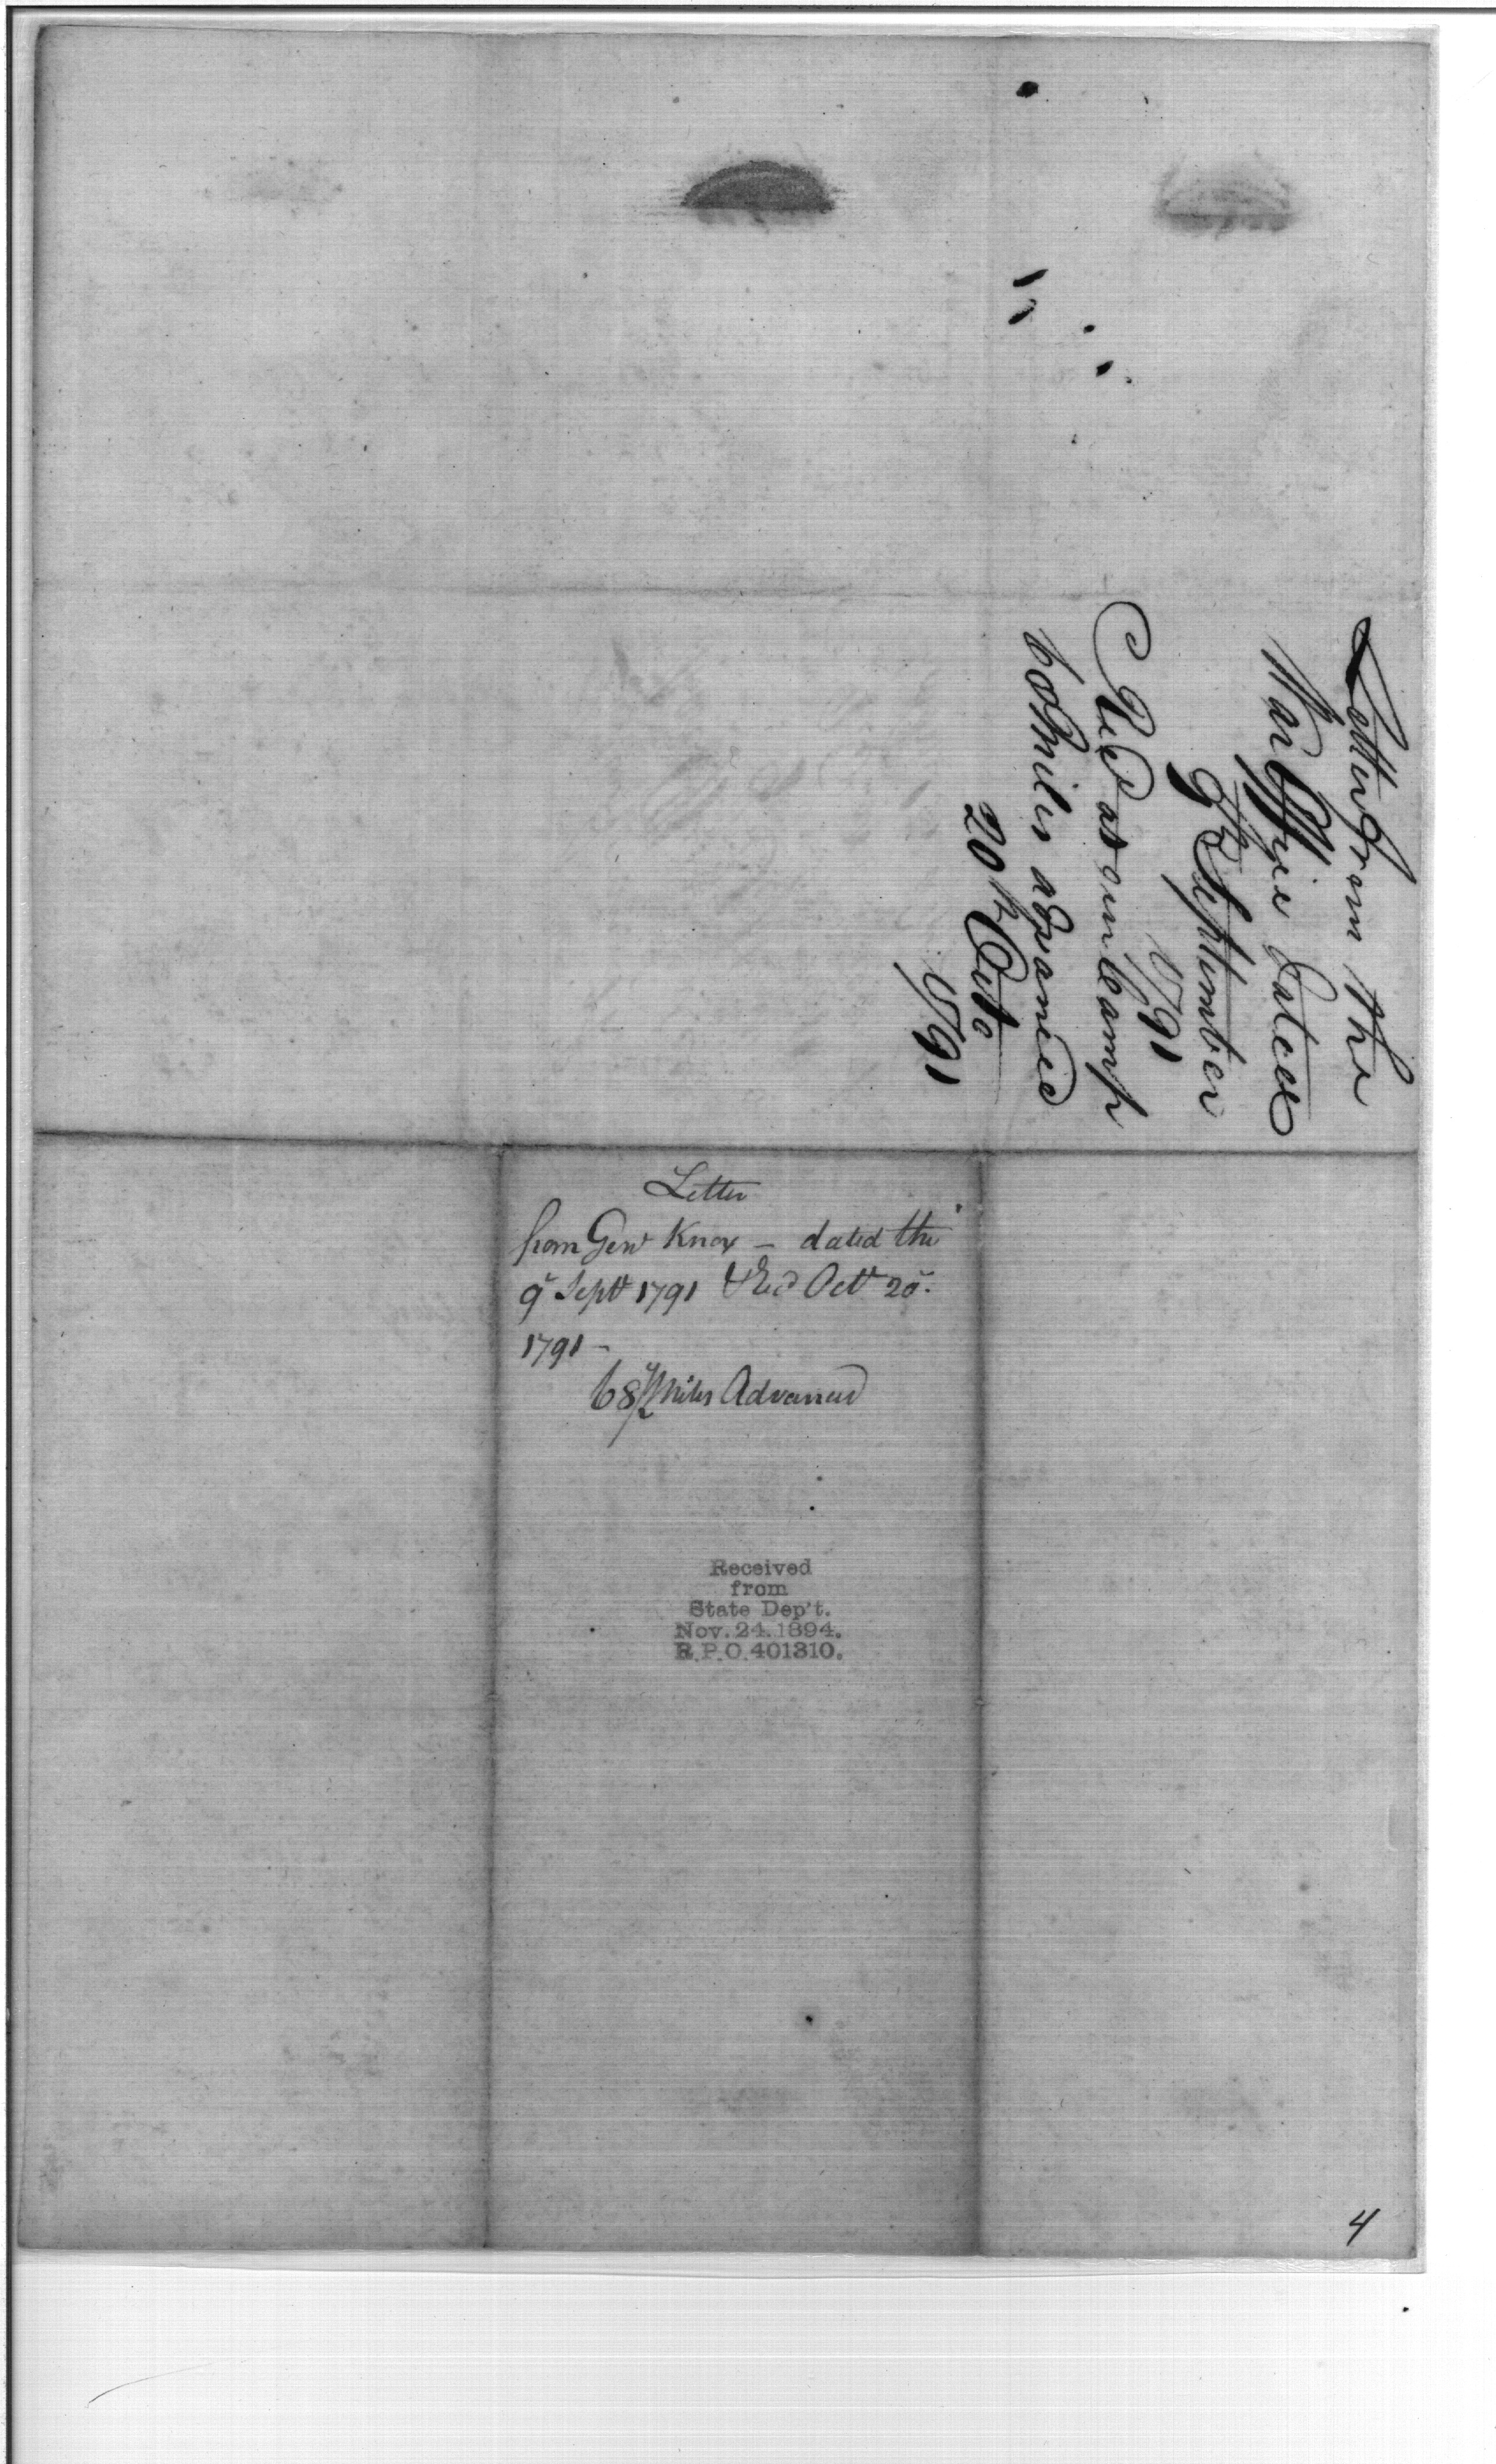 Letter from the
War Office dated
9th September
1791
Recd at our Camp
68 Miles advanced
20th Octo
1791
Letter
from Genl Knox – dated the
9th Septr 1791 & Recd Octr 20th.
1791 –
68 1/2 Miles Advanced
Received
from
State Dep't.
Nov. 24. 1894.
R.P.O. 401310.
4